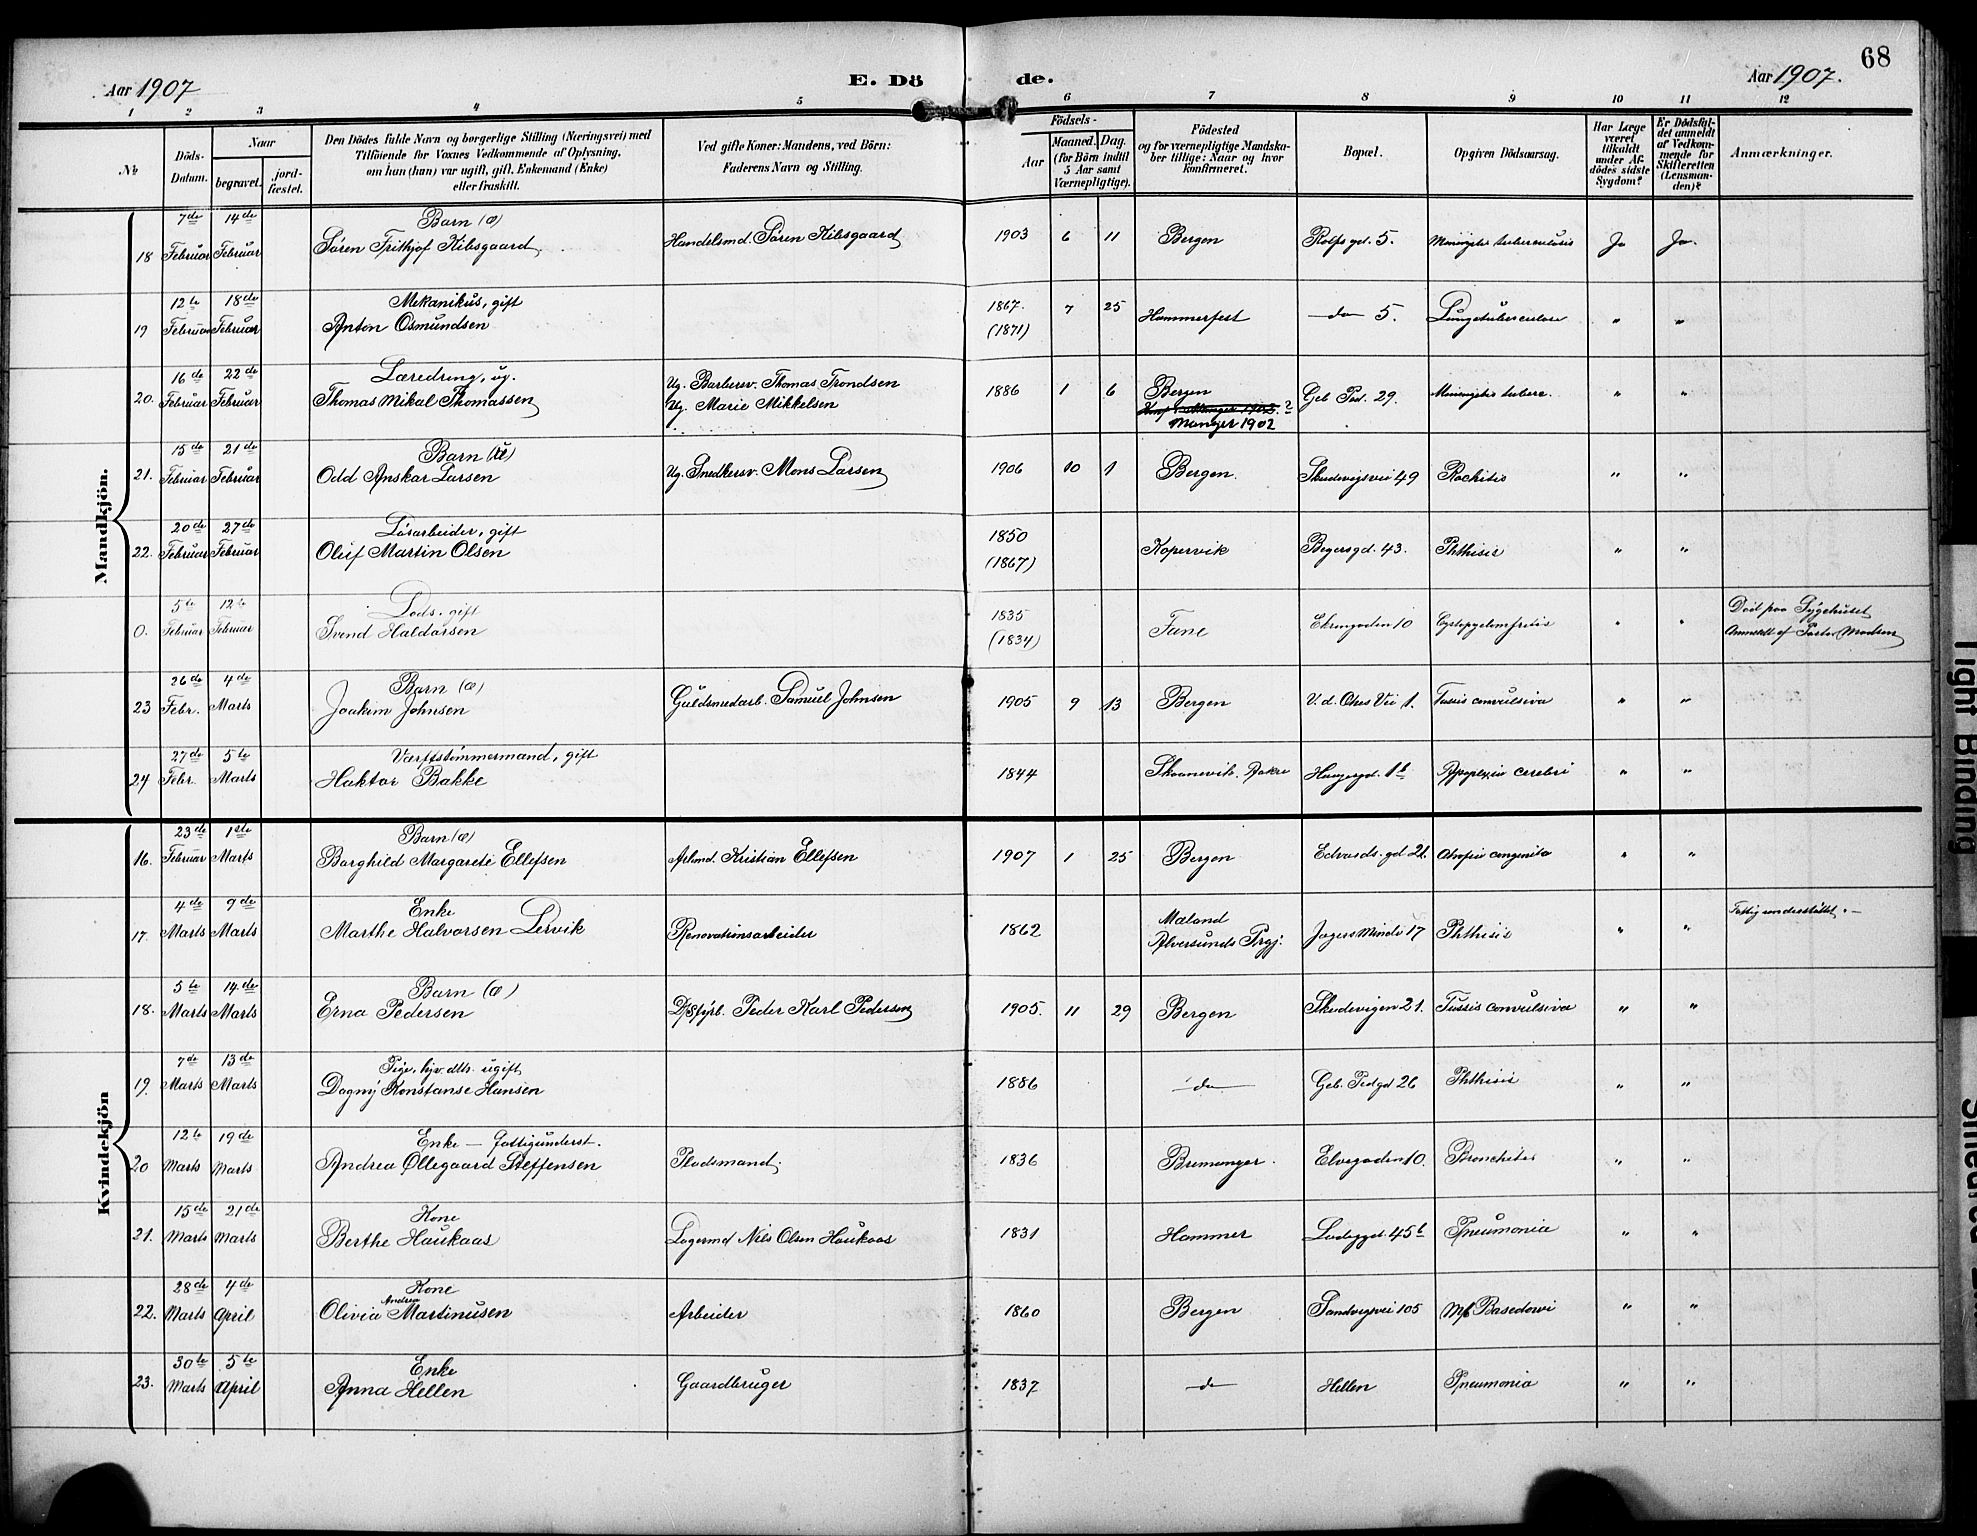 68
Aar 1907
E. Dö de.
Aar 1907.
1 2 3 4 5 6 7 8 9 10 11 12
No
Döds-Datum.
Naar
begravet.
jord-fæstet.
Den Dödes fulde Navn og borgerlige Stilling (Næringsvei) med
Tilföiende for Voxnes Vedkommende af Oplysning,
om han (hun) var ugift, gift, Enkemand (Enke)
eller fraskilt.
Ved gifte Koner: Mandens, ved Börn:
Faderens Navn og Stilling.
Födsels-
Aar
Maaned. Dag.
(for Börn indtil
5 Aar samt
Værnepligtige).
Födested
og for værnepligtige Mandska-
ber tillige: Naar og hvor
konfirmeret.
Bopæl.
Opgiven Dödsaarsag.
Har Læge
været
tilkaldt
under Af-
dödes sidste
Sygdom?
Er Dödsfal-
det anmeldt
af Vedkom-
mende for
Skifteretten
(Lensman-
den)?
Anmærkninger.
Mandkjön.
18 7de Februar 14de Februar Barn (æ)
Sören Frithjof Kibsgaard Handelsmd. Sören Kibsgaard 1903 6 11 Bergen Rolfs gd. 5. Meningitis tuberculosis Ja Ja.
19 12te Februar 18de Februar Mekanikus, gift
Anton Osmundsen 1867. (1871) 7 25 Hammerfest —do— 5. Lungetuberculose " "
20. 16de Februar 22de Februar Læredreng, ug.
Thomas Mikal Thomassen Ug. Barbersv. Thomas Trondsen
Ug. Marie Mikkelsen 1886 1 6 Bergen
Manger 1902 Geb. Ped. 29. Meningitis tuberc. " "
21. 15de Februar 21de Februar Barn (u)
Odd Anskar Larsen Ug. Snedkersv. Mons Larsen 1906 10 1 Bergen. Skudevigsvei 49 Rachitis " "
22. 20de Februar 27de Februar Løsarbeider, gift
Oluf Martin Olsen 1850 (1867) Kopervik Begersgd. 43. Phthisis " "
0. 5te Februar 12te Februar Lods, gift
Svend Haldorsen 1835 (1834) Fane 10 " " Död paa Sygehuset
Anmeldt af Pastor Madsen
23 26de Febr. 4de Marts Barn (æ)
Joakim Johnsen Guldsmedarb. Samuel Johnsen 1905 9 13 Bergen V. d. Vei 1. Tussis convulsiva " "
24 27de Febr. 5te Marts Værftstømmermand, gift
Haktor Bakke 1844 Skaanevik. 1b Apoplexia cerebri " "
Kvindekjön
16. 23de Februar 1ste Marts Barn (æ)
Borghild Margarete Ellefsen Arbmd. Kristian Ellefsen 1907 1 25 Bergen Edvards. gd 21. Atrofia congenita " "
17. 4de Marts 9de Marts Enke
Marthe Halvorsen Lervik Renovationsarbeider 1862 Mæland
Alversunds Prgj. Jægers Minde 17 Phthisis " " Fattigunderstöttet. —
18. 5te Marts 14de Marts Barn (æ)
Erna Pedersen D/Sfyrb. Peder Karl Pedersen 1905. 11 29 Bergen Skudevigen 21. Tussis convulsiva " "
19. 7de Marts 13de Marts Pige, hjv. dtr. ugift
Dagny Konstanse Hansen 1886 —do— Geb. Pedgd 26 Phthisis " "
20 12te Marts 19de Marts Enke — fattigunderst.
Andrea Øllegaard Steffensen Pladsmand. 1836 Bremanger. Elvegaden 10. Bronchitis " "
21. 15de Marts 21de Marts Kone
Berthe Haukaas Lagermd Nils Olsen Haukaas 1831 Hammer Ladeggd. 45b Pneumonia " "
22. 28de Marts 4de April Kone
Andrea
Olivia Martinusen Arbeider 1860 Bergen Sandvigsvei 105 Mb Basedowi " "
23. 30te Marts 5te April Enke
Anna Hellen Gaardbruger 1837 —do— Hellen Pneumonia " "
Tight Binding